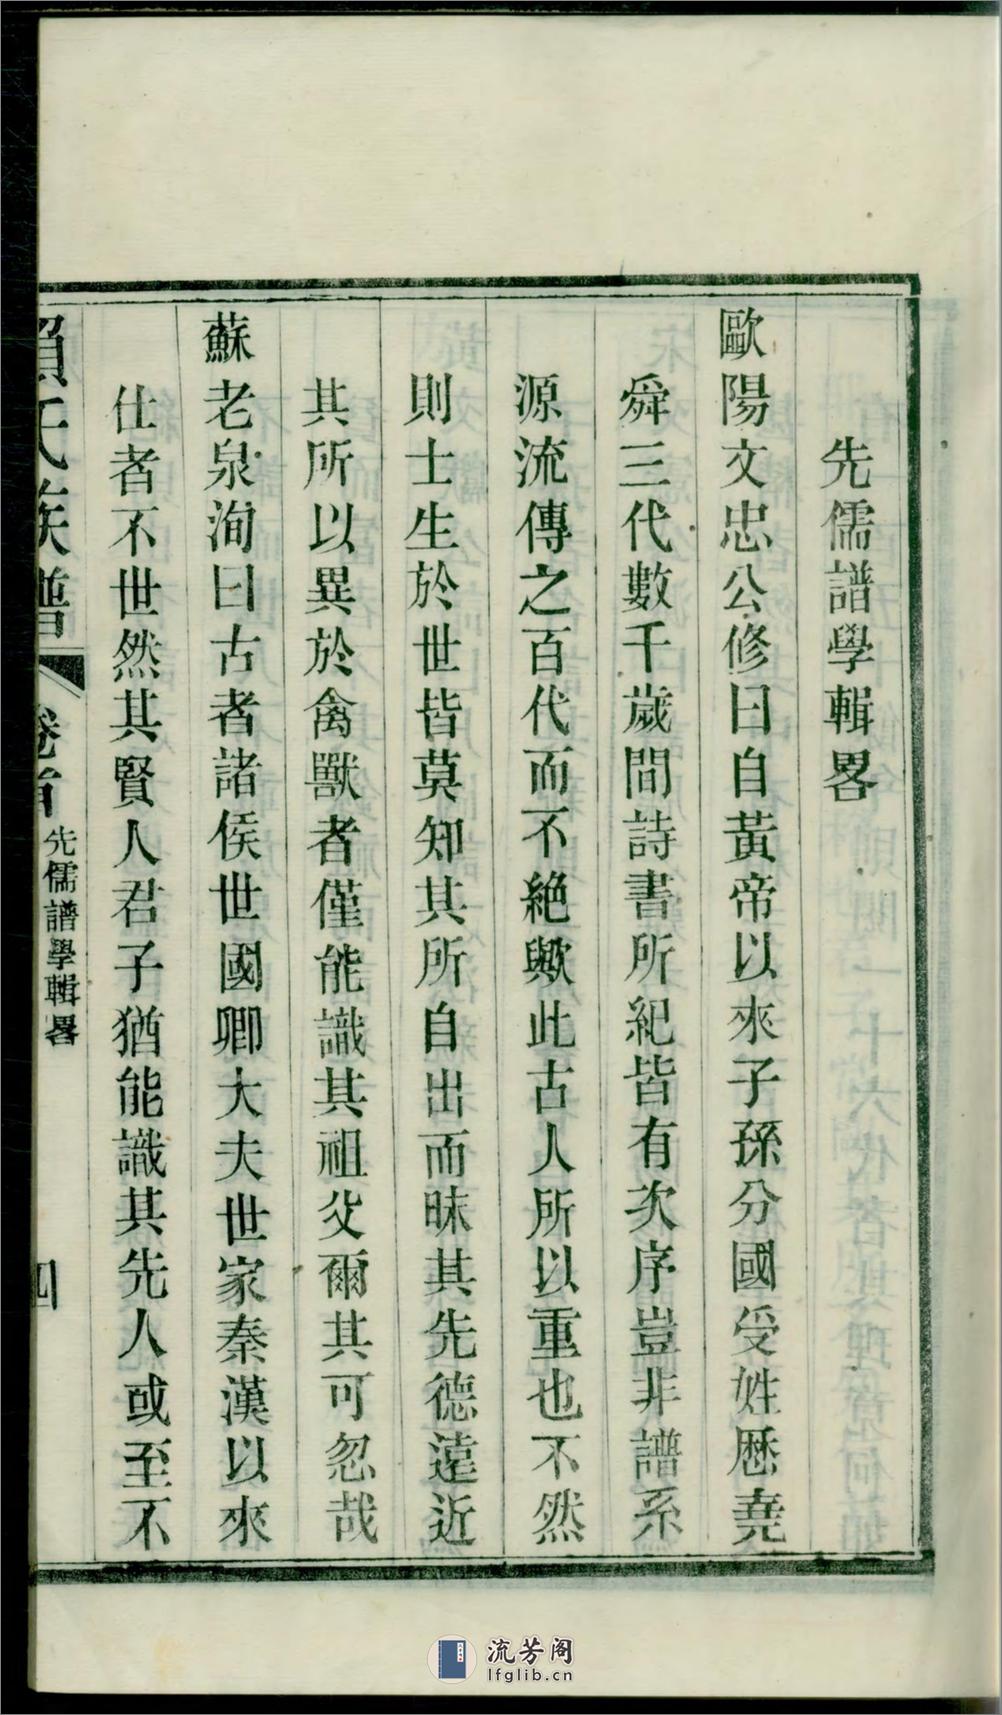 先儒譜學輯畧
歐陽文忠公修曰自黃帝以來子孫分國受姓歷堯
舜三代數千歲間詩書所紀皆有次序豈非譜系
源流傳之百代而不絕歟此古人所以重也不然
則士生於世皆莫知其所自出而昧其先德遠近
其所以異於禽獸者僅能識其祖父爾其可忽哉
蘇老泉洵曰古者諸侯世國卿大夫世家秦漢以來
仕者不世然其賢人君子猶能識其先人或至不
氏族譜
卷首
先儒譜學輯畧
四
流芳阁
lfglib.cn